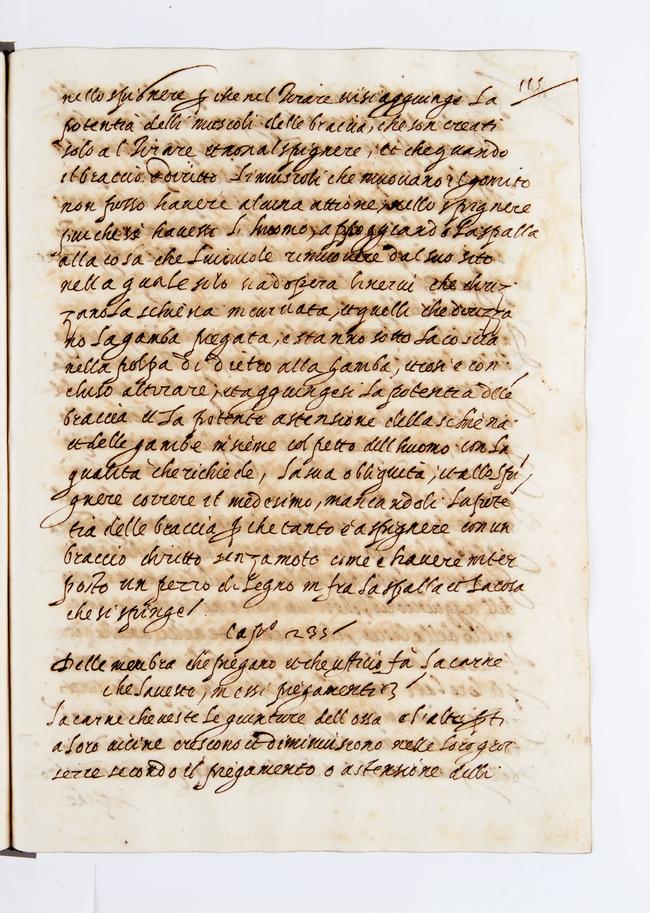 115
nello spignere p che nel tirare visi aggiunge La
potentia delli muscoli delle braccia, che son creati
solo al tirare et non al spignere, et che quando
il braccio è diritto li muscoli che muovano il gomito
non posso havere alcuna attione, nello spignere
piu che si havessi L'huomo, appoggiando La spalla
alla cosa che Lui vuole rimuovere dal suo sito
nella quale solo si adopera linervi che diriz-
zano La schiena incurvata, et quelli che dirizza
no La gamba piegata, e stanno sotto La coscia
nella polpa di dietro alla Gamba, et cosi e con
cluso al tirare, et aggiungesi La potentia delle
braccia et La potente astensione della schiena
et delle gambe insieme col petto dell huomo con La
qualità che richiede, La sua obliquità, et allo spi
gnere correre il medesimo, mancandoli La poten
tia delle braccia p che tanto è a spignere con un
braccio diritto senza moto come e havere inter
posto un pezzo di Legno in fra La spalla et La cosa
che si spinge
Capº 235
Delle membra che piegano et che uffitio fà La carne
che La veste, in essi piegamenti
La carne che veste Le giunture dell ossa e l'altre pti
a loro vicine crescono et diminuiscono nelle loro gros
sezze secondo il piegamento o astensione delli